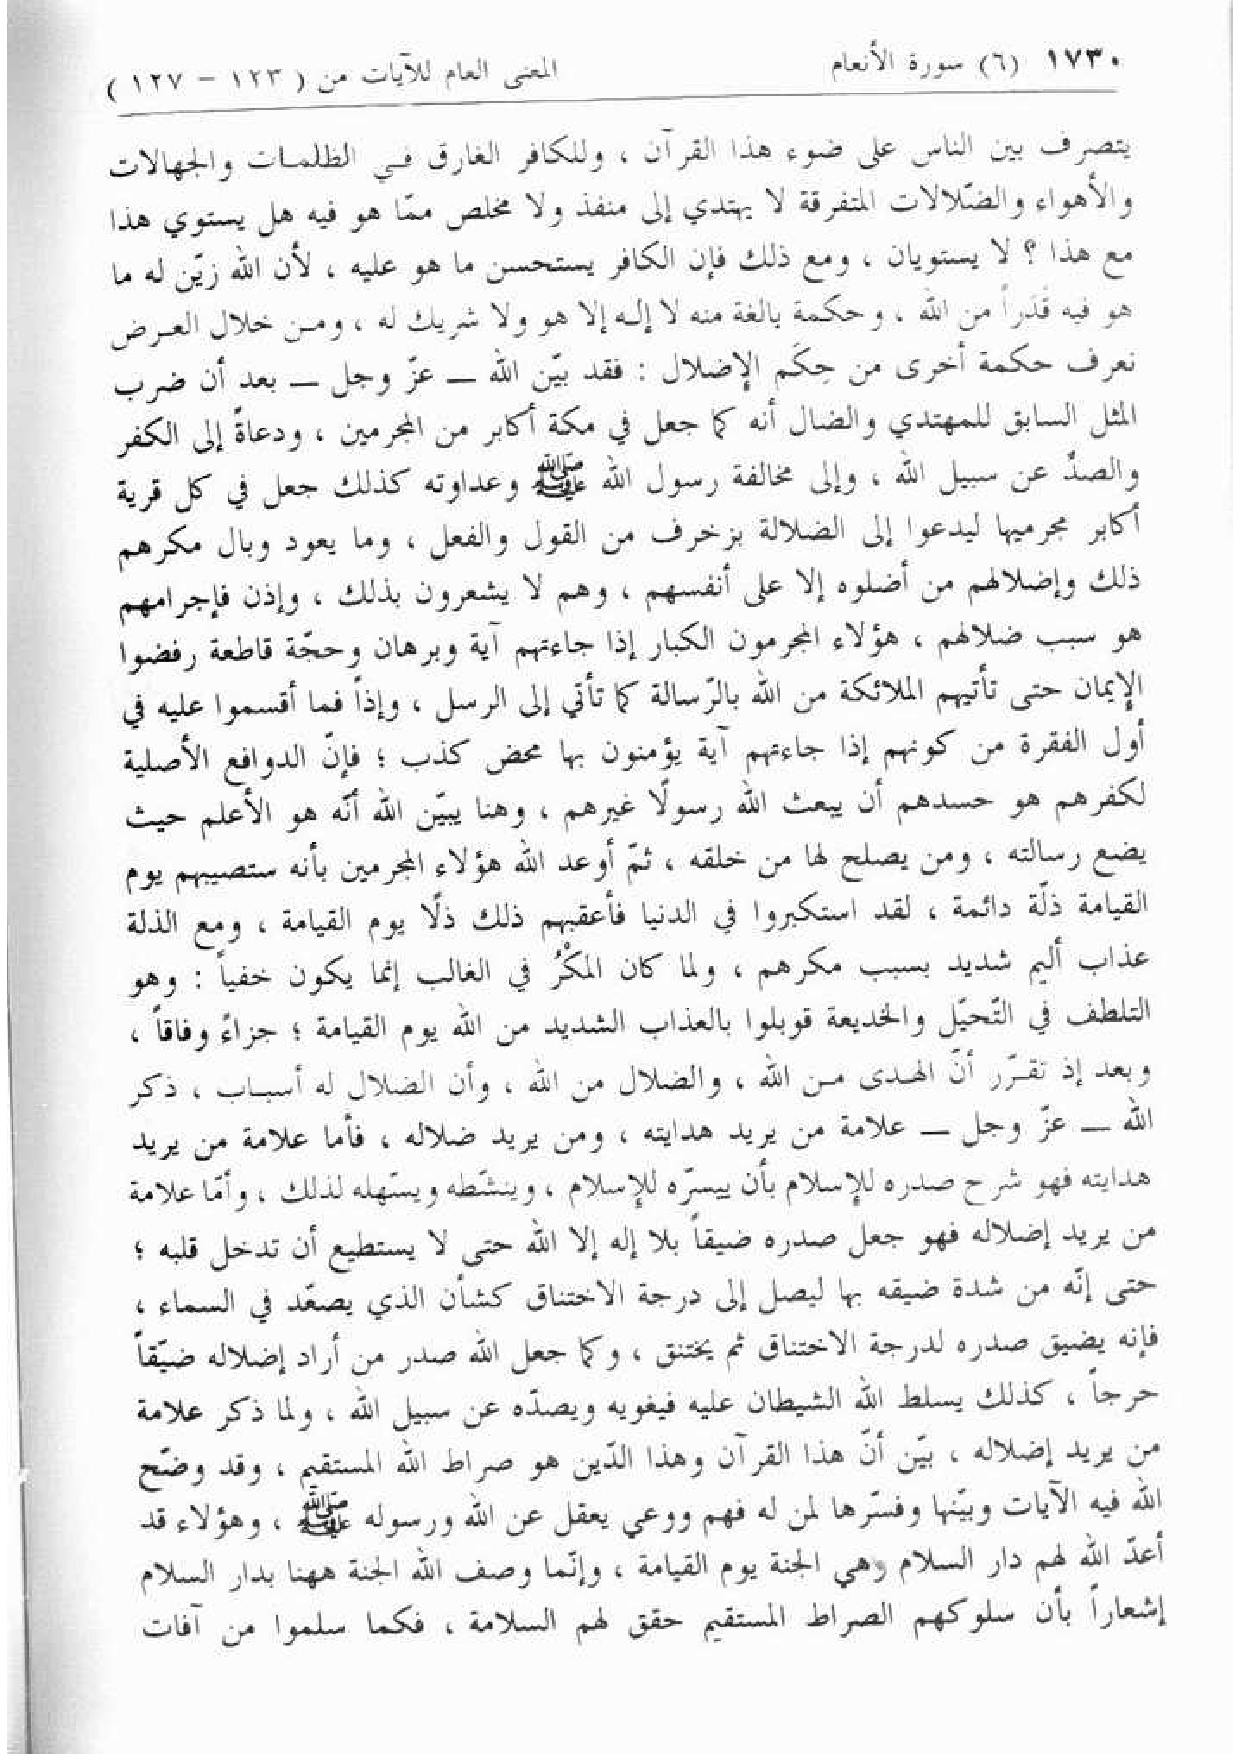 ١٧٣٠ (٦) سورة الأنعام المعنى العام للآيات من ( ١٢٣ - ١٢٧ )
يتصرف بين الناس على ضوء هذا القرآن ، وللكافر الغارق فـي الظلمـات والجهالات
والأهواء والضّلالات المتفرقة لا يهتدي إلى منفذ ولا مخلص ممّا هو فيه هل يستوي هذا
مع هذا ؟ لا يستويان ، ومع ذلك فإن الكافر يستحسن ما هو عليه ، لأن الله زيّن له ما
هو فيه قَدَراً من الله ، وحكمة بالغة منه لا إلـه إلا هو ولا شريك له ، ومـن خلال العـرض
نعرف حكمة أخرى من حِكَم الإضلال : فقد بيّن الله ــ عزّ وجل ــ بعد أن ضرب
المثل السابق للمهتدي والضال أنه كما جعل في مكة أكابر من المجرمين ، ودعاةً إلى الكفر
والصدِّ عن سبيل الله ، وإلى مخالفة رسول الله ﷺ وعداوته كذلك جعل في كل قرية
أكابر مجرميها ليدعوا إلى الضلالة بزخرف من القول والفعل ، وما يعود وبال مكرهم
ذلك وإضلالهم من أضلوه إلا على أنفسهم ، وهم لا يشعرون بذلك ، وإذن فإجرامهم
هو سبب ضلالهم ، هؤلاء المجرمون الكبار إذا جاءتهم آية وبرهان وحجّة قاطعة رفضوا
الإيمان حتى تأتيهم الملائكة من الله بالرّسالة كما تأتي إلى الرسل ، وإذاً فما أقسموا عليه في
أول الفقرة من كونهم إذا جاءتهم آية يؤمنون بها محض كذب ؛ فإنّ الدوافع الأصلية
لكفرهم هو حسدهم أن يبعث الله رسولًا غيرهم ، وهنا يبيّن الله أنّه هو الأعلم حيث
يضع رسالته ، ومن يصلح لها من خلقه ، ثمّ أوعد الله هؤلاء المجرمين بأنه ستصيبهم يوم
القيامة ذلّة دائمة ، لقد استكبروا في الدنيا فأعقبهم ذلك ذلًا يوم القيامة ، ومع الذلة
عذاب أليم شديد بسبب مكرهم ، ولما كان المكْرُ في الغالب إنما يكون خفياً : وهو
التلطف في التّحيّل والخديعة قوبلوا بالعذاب الشديد من الله يوم القيامة ؛ جزاءً وفاقاً ،
وبعد إذ تقـرّر أنّ الهـدى مـن الله ، والضلال من الله ، وأن الضلال له أسبـاب ، ذكر
الله ــ عزّ وجل ــ علامة من يريد هدايته ، ومن يريد ضلاله ، فأما علامة من يريد
هدايته فهو شرح صدره للإسلام بأن ييسرّه للإسلام ، وينشّطه ويسّهله لذلك ، وأمّا علامة
من يريد إضلاله فهو جعل صدره ضيقاً بلا إله إلا الله حتى لا يستطيع أن تدخل قلبه ؛
حتى إنّه من شدة ضيقه بها ليصل إلى درجة الاختناق كشأن الذي يصعّد في السماء ،
فإنه يضيق صدره لدرجة الاختناق ثم يختنق ، وكما جعل الله صدر من أراد إضلاله ضيّقاً
حرجاً ، كذلك يسلط الله الشيطان عليه فيغويه ويصدّه عن سبيل الله ، ولما ذكر علامة
من يريد إضلاله ، بيّن أنّ هذا القرآن وهذا الدّين هو صراط الله المستقيم ، وقد وضّح
الله فيه الآيات وبيّنها وفسّرها لمن له فهم ووعي يعقل عن الله ورسوله ﷺ ، وهؤلاء قد
أعدّ الله لهم دار السلام وهي الجنة يوم القيامة ، وإنّما وصف الله الجنة ههنا بدار السلام
إشعاراً بأن سلوكهم الصراط المستقيم حقق لهم السلامة ، فكما سلموا من آفات